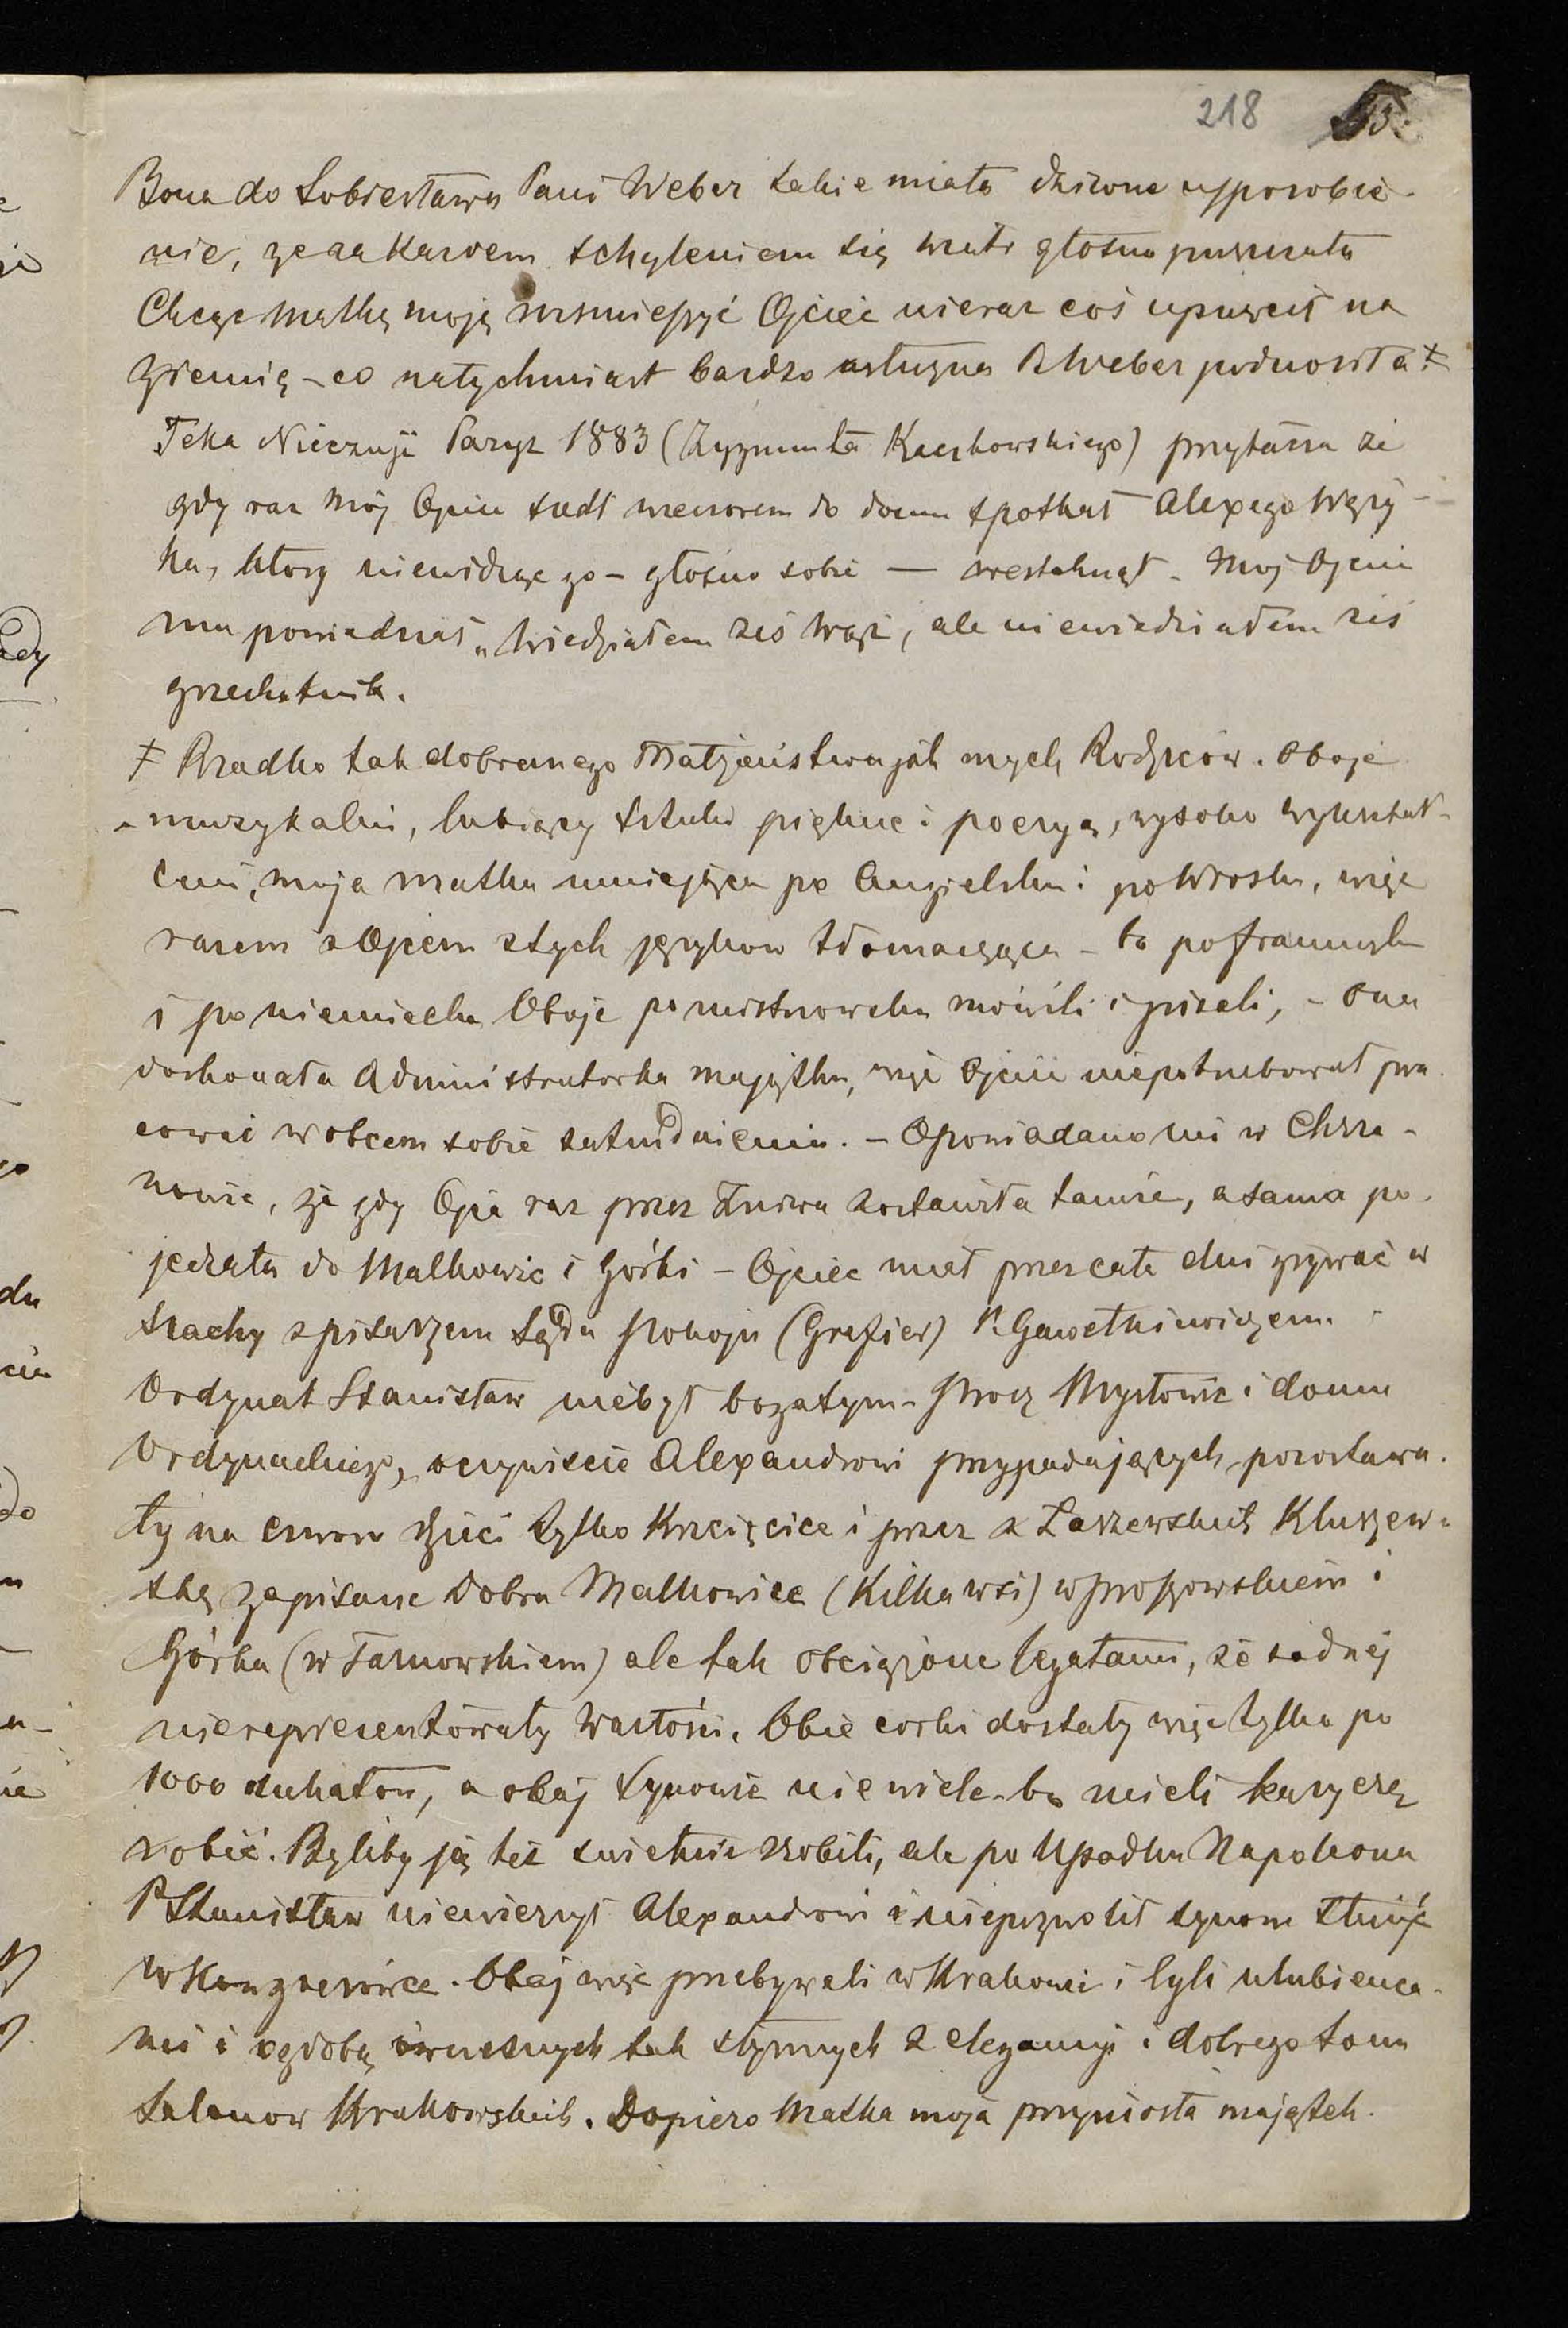 218
Bona do Sobiesława Pani Weber takie miała dziwne usposobie-
nie, że za każdem schyleniem się wiatr głośno puszczała
Chcąc Matkę moją rozśmieszyć Ojciec nieraz coś upuścił na
ziemię – co natychmiast bardzo usłużna P. Weber podnosiła ‡
Teka Nieczuji Paryż 1883 (Zygmunta Kaczkowskiego) przytacza że
gdy raz mój Ojciec szedł wieczorem do domu spotkał Alexego Węży-
ka, który niewidząc go – głośno sobie — westchnął. Mój Ojciec
mu powiedział „Wiedziałem żeś Wąż, ale niewiedziałem żeś
grzechotnik.
‡ Rzadko tak dobranego Małżeństwa jak mych Rodziców. Oboje
muzykalni, lubiący sztuki piękne i poezyą, wysoko wykształ-
ceni, moja matka umiejąca po Angielsku i po Włosku, więc
razem z Ojcem z tych języków tłomacząca – to po francusku
i po niemiecku Oboje po mistrzowsku mówili i pisali, – Ona
doskonała Administratorka majątku, więc Ojciec niepotrzebował pra-
cować w obcem sobie zatrudnieniu. – Opowiadano mi w Chrza-
nowie, że gdy Ojca raz przez Żniwa zostawiła tamże, a sama po-
jechała do Malkowic i Górki – Ojciec miał przez całe dni grywać w
szachy z pisarzem Sądu Pokoju (Grefier) P. Gawełkiewiczem.
Ordynat Stanisław niebył bogatym. Procz Mysłowic i domu
Ordynackiego, oczywiście Alexandrowi przypadających, pozostawa-
ły na czworo dzieci tylko Krzcięcice i przez z Łaszewskich Kluszew-
ską zapisane Dobra Malkowice (Kilka wsi) w proszowskiem i
Górka (w Tarnowskiem) ale tak obciążone legatami, że żadnej
niereprezentowały Wartości. Obie corki dostały więc tylko po
1000 dukatow, a obaj Synowie niewiele – bo mieli karyerę
robić. Byliby ją też świetnie zrobili, ale po Upadku Napoleona
P Stanisław niewierzył Alexandrowi i niepozwolił synom służyć
w Kongresówce. Obaj więc przebywali w Krakowie i byli ulubieńca-
mi i ozdobą owczesnych tak słynnych z elegancyi i dobrego tonu
Salonow Krakowskich. Dopiero Matka moja przyniosła majątek.